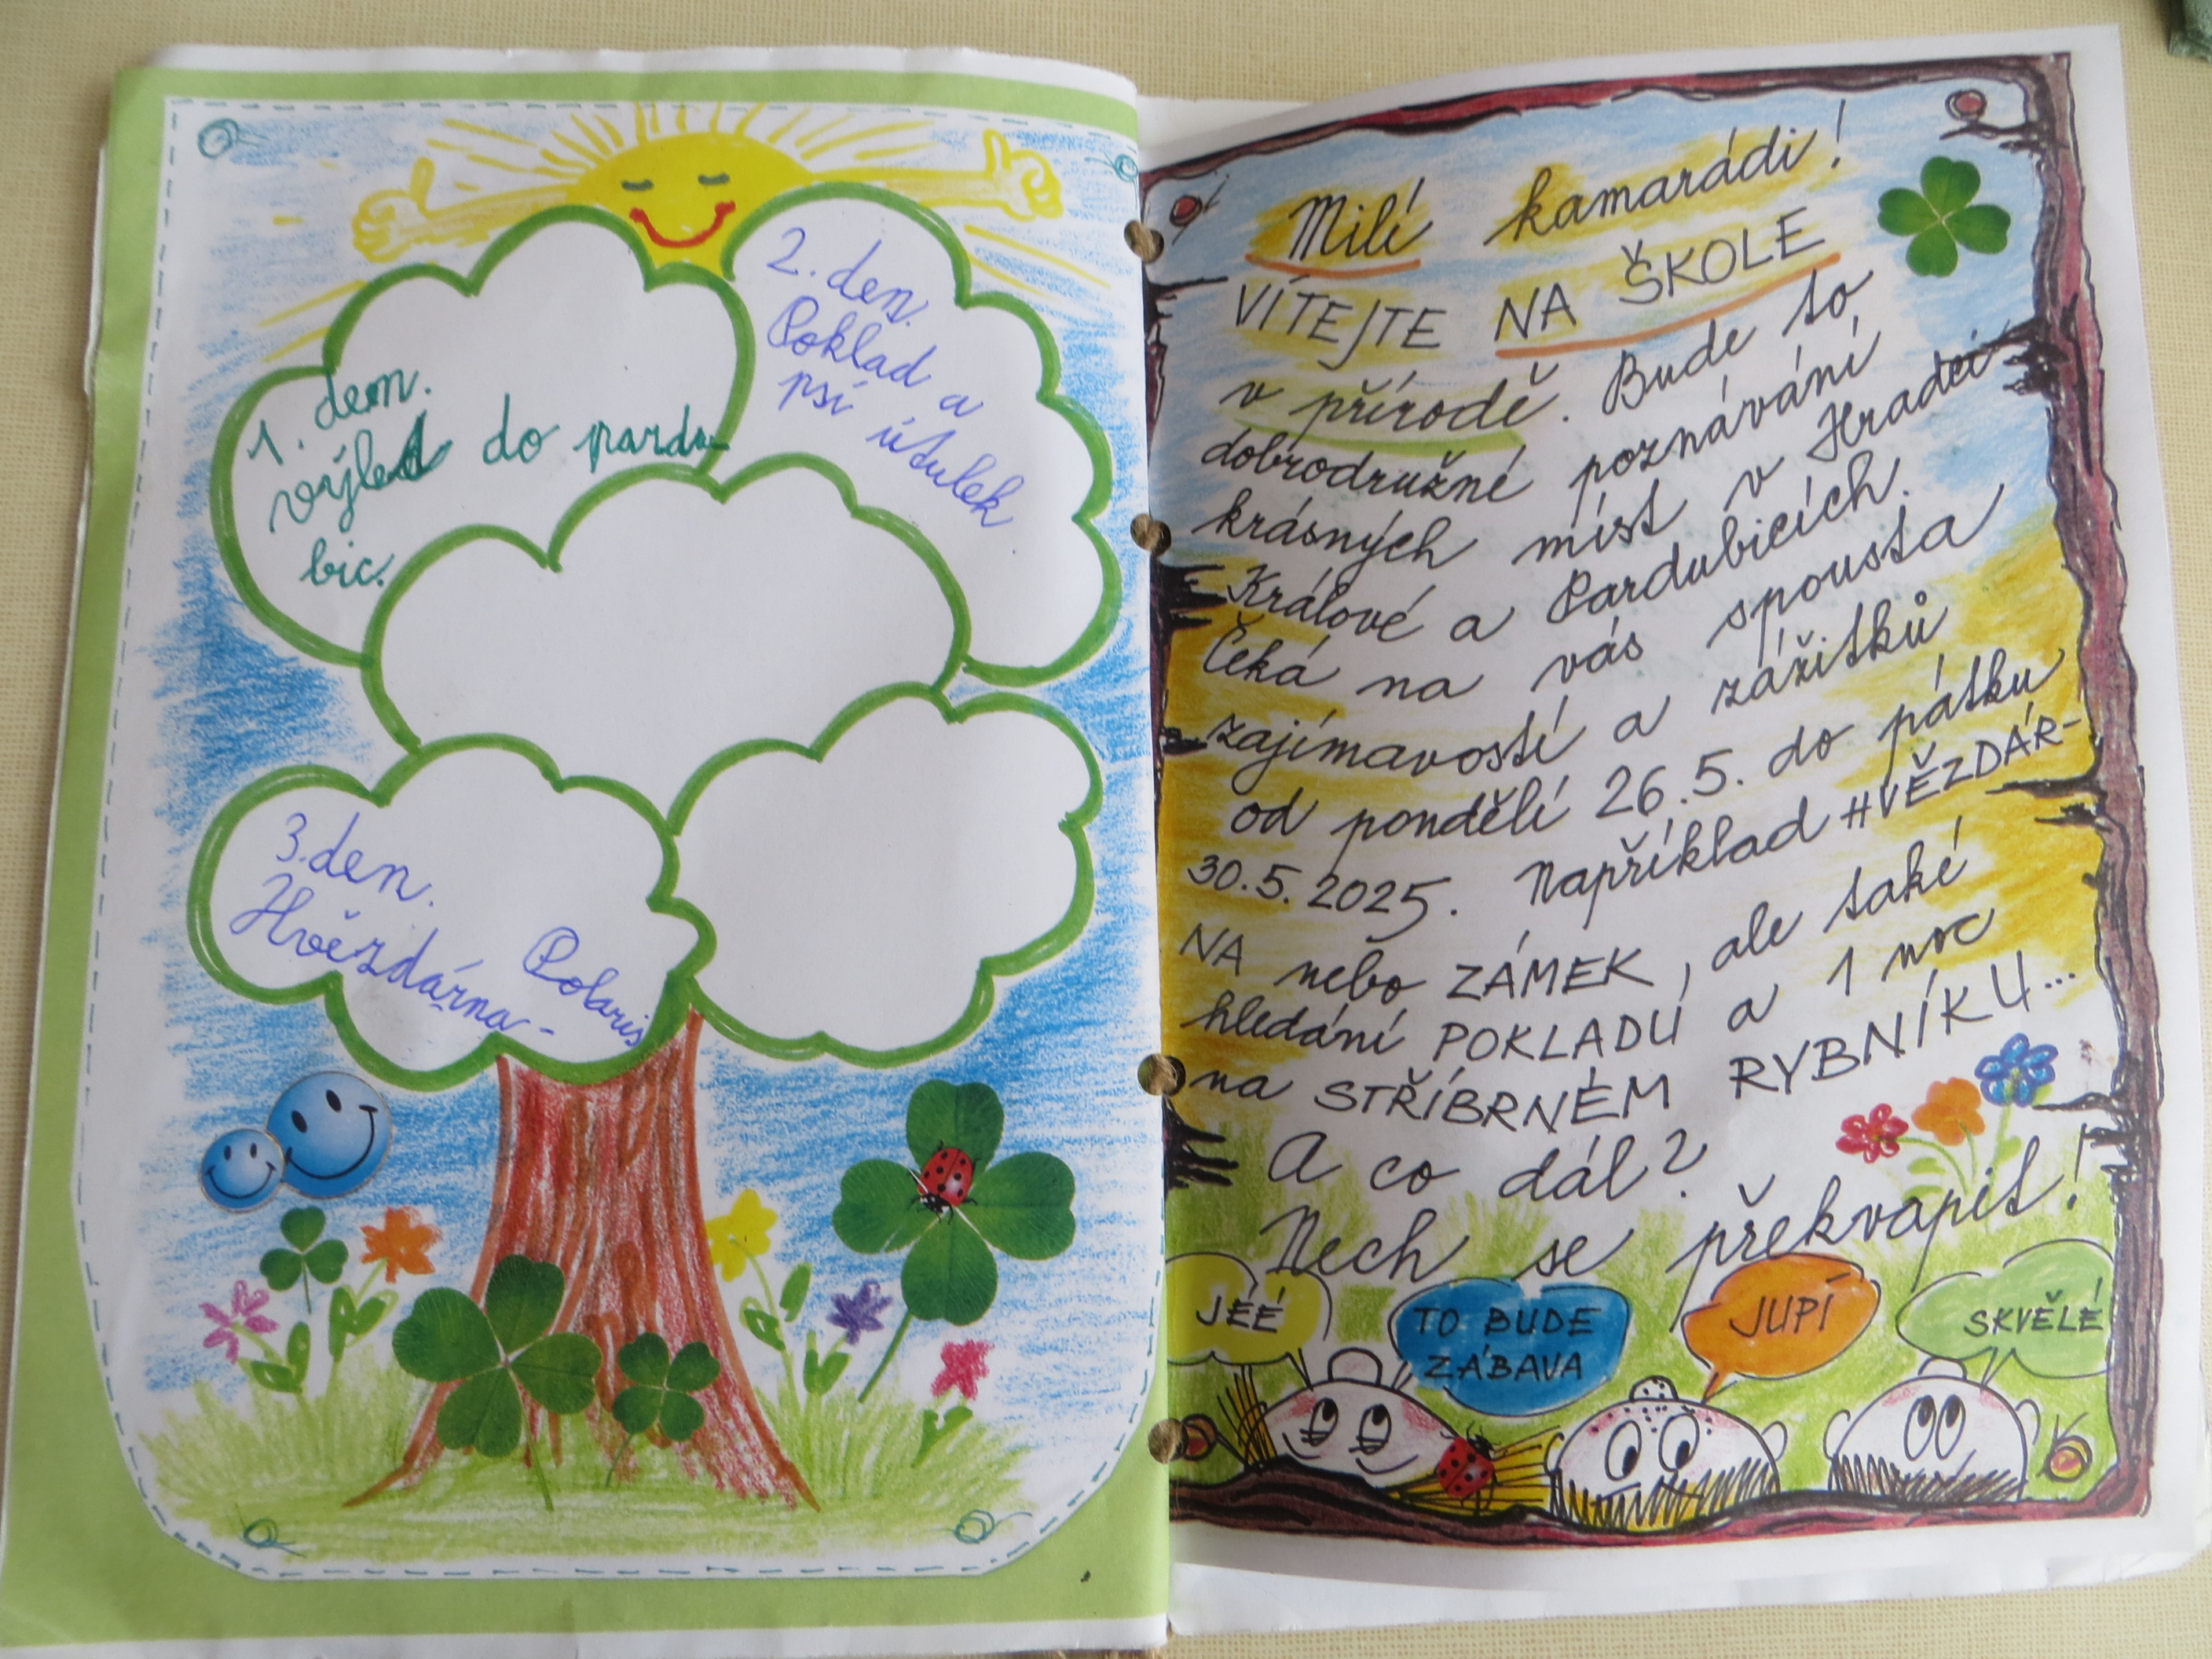 1. den.
výlet do pardu-
bic.
2. den.
Poklad a
psí útulek
3. den.
Hvězdárna -
Polaris
Milí kamarádi!
VÍTEJTE NA ŠKOLE
v přírodě. Bude to
dobrodružné poznávání
krásných míst v Hradci
Králové a Pardubicích.
Čeká na vás spousta
zajímavostí a zážitků
od pondělí 26.5. do pátku
30.5.2025. Například HVĚZDÁR-
NA nebo ZÁMEK, ale také
hledání POKLADU a 1 noc
na STŘÍBRNÉM RYBNÍKU...
A co dál?
Nech se překvapit!
JÉÉ
TO BUDE
ZÁBAVA
JUPÍ
SKVĚLÉ